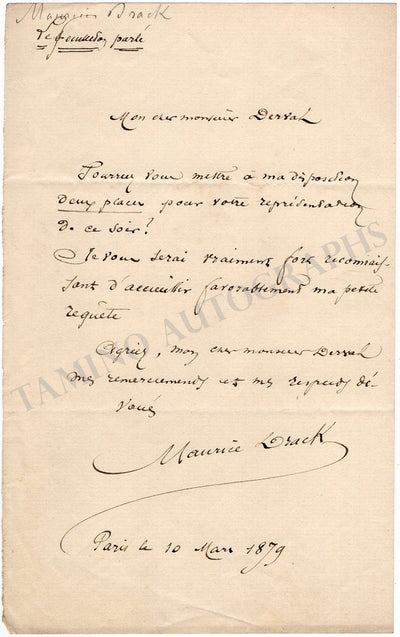 Maurice Drack
Le feuilleton parlé
Mon cher monsieur Derval
Pourriez vous mettre à ma disposition
deux places pour votre représentation
de ce soir?
Je vous serai vraiment fort reconnais-
sant d'accueillir favorablement ma petite
requête
Agréez, mon cher monsieur Derval
mes remerciements et mes respects dé-
voués
Maurice Drack
Paris le 10 Mars 1879
TAMINO AUTOGRAPHS